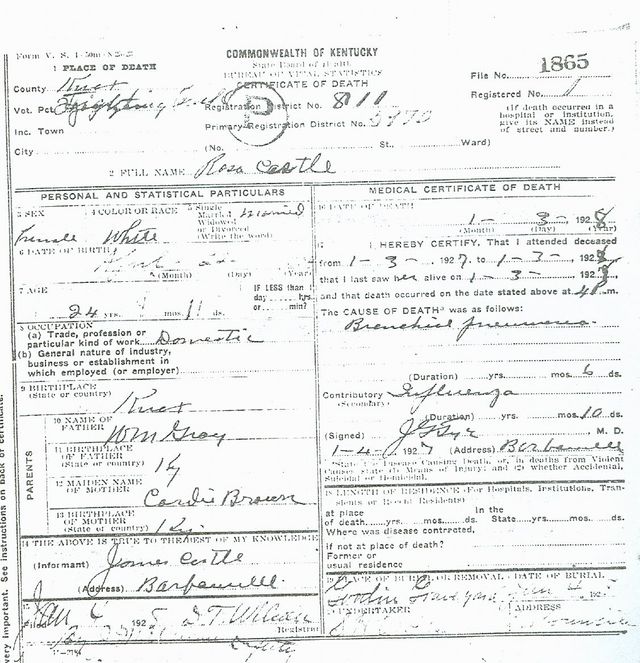 Form V. S. 1-50m-8-26-27
COMMONWEALTH OF KENTUCKY
State Board of Health
BUREAU OF VITAL STATISTICS
CERTIFICATE OF DEATH
1 PLACE OF DEATH
County Knox
File No. 1865
Registered No. 1
Vot. Pct. Registration District No. 811
(If death occurred in a hospital or institution, give its NAME instead of street and number.)
Inc. Town Primary Registration District No.
City (No. St. Ward)
2 FULL NAME Rosa Castle
PERSONAL AND STATISTICAL PARTICULARS
3 SEX Female
4 COLOR OR RACE White
5 Single Married Widowed or Divorced (Write the word) married
6 DATE OF BIRTH
(Month) (Day) (Year)
7 AGE
24 yrs. mos. 11 ds.
IF LESS than 1 day hrs. or min?
8 OCCUPATION
(a) Trade, profession or particular kind of work Domestic
(b) General nature of industry, business or establishment in which employed (or employer)
9 BIRTHPLACE
(State or country) Knox
PARENTS
10 NAME OF FATHER Wm Gray
11 BIRTHPLACE OF FATHER (State or country) Ky
12 MAIDEN NAME OF MOTHER Cordie Brown
13 BIRTHPLACE OF MOTHER (State or country) Ky.
14 THE ABOVE IS TRUE TO THE BEST OF MY KNOWLEDGE
(Informant) James Castle
(Address)
Filed Jan 6 192 Registrar
MEDICAL CERTIFICATE OF DEATH
16 DATE OF DEATH
1 - 3 - 1928
(Month) (Day) (Year)
I HEREBY CERTIFY, That I attended deceased
from 1 - 3 - 1927, to 1 - 3 -, 1928,
that I last saw her alive on 1 - 3 -, 192
and that death occurred on the date stated above at m.
The CAUSE OF DEATH* was as follows:
Bronchial pneumonia
(Duration) yrs. mos. 6 ds.
Contributory Influenza
(Secondary)
(Duration) yrs. mos. 10 ds.
(Signed) M. D.
1-4- 1927 (Address)
*State the Disease Causing Death, or, in deaths from Violent Causes, state (1) Means of Injury; and (2) whether Accidental, Suicidal or Homicidal.
18 LENGTH OF RESIDENCE (For Hospitals, Institutions, Transients or Recent Residents)
at place of death yrs. mos. ds. In the State yrs. mos. ds.
Where was disease contracted,
if not at place of death?
Former or usual residence
19 PLACE OF BURIAL OR REMOVAL DATE OF BURIAL
Graveyard 192
20 UNDERTAKER ADDRESS
very important. See instructions on back of certificate.